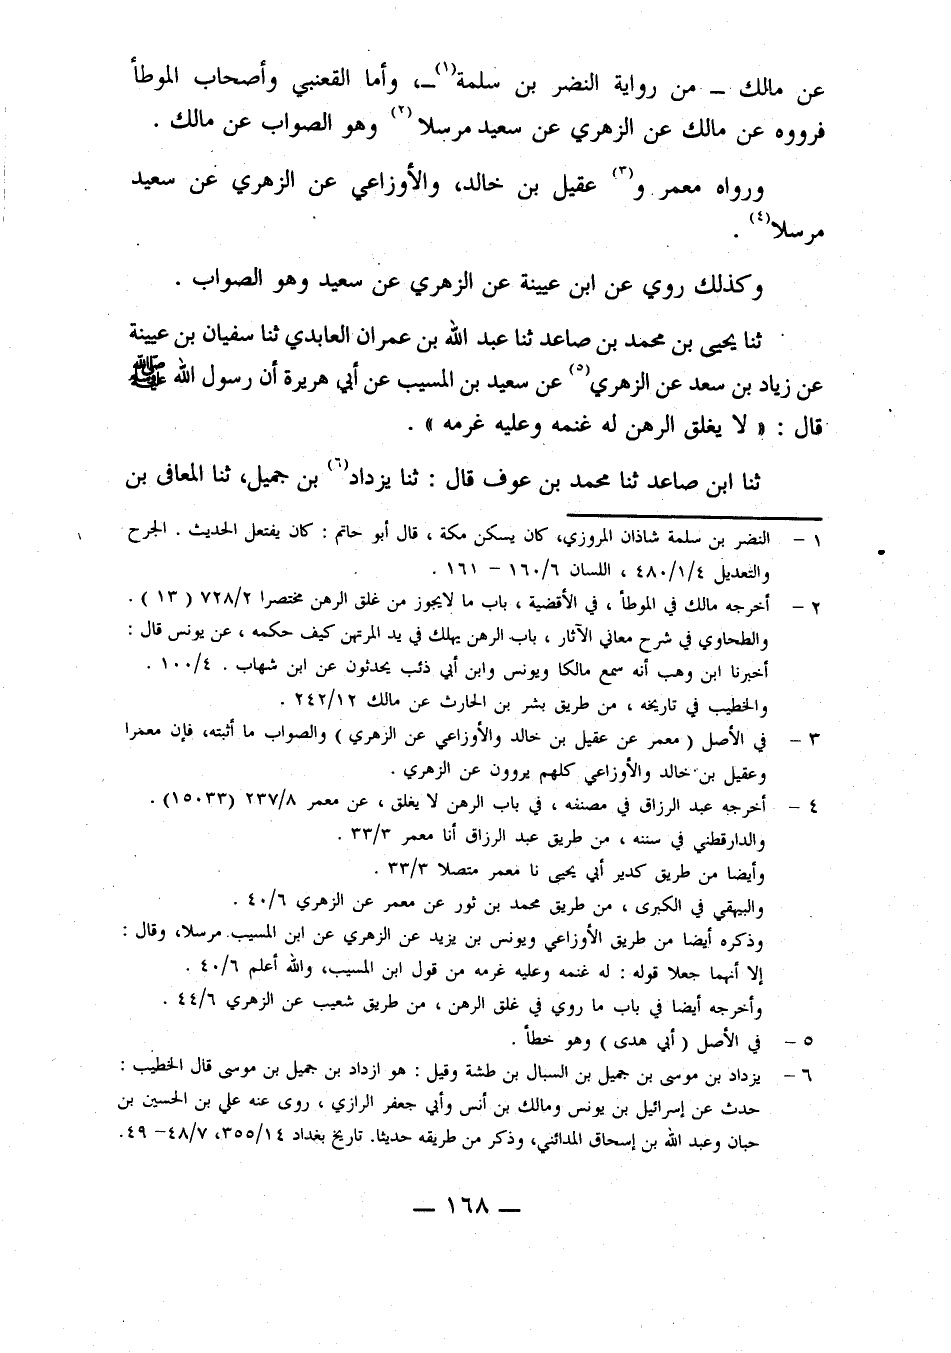 عن مالك ــ من رواية النضر بن سلمة(١) ــ، وأما القعنبي وأصحاب الموطأ
فرووه عن مالك عن الزهري عن سعيد مرسلا(٢) وهو الصواب عن مالك .
ورواه معمر و(٣) عقيل بن خالد، والأوزاعي عن الزهري عن سعيد
مرسلا(٤) .
وكذلك روي عن ابن عيينة عن الزهري عن سعيد وهو الصواب .
ثنا يحيى بن محمد بن صاعد ثنا عبد الله بن عمران العابدي ثنا سفيان بن عيينة
عن زياد بن سعد عن الزهري(٥) عن سعيد بن المسيب عن أبي هريرة أن رسول الله ﷺ
قال : « لا يغلق الرهن له غنمه وعليه غرمه » .
ثنا ابن صاعد ثنا محمد بن عوف قال : ثنا يزداد(٦) بن جميل، ثنا المعافى بن
١ – النضر بن سلمة شاذان المروزي، كان يسكن مكة ، قال أبو حاتم : كان يفتعل الحديث . الجرح
والتعديل ٤/١/٤٨٠ ، اللسان ٦/١٦٠ – ١٦١ .
٢ – أخرجه مالك في الموطأ ، في الأقضية ، باب ما لايجوز من غلق الرهن مختصرا ٢/٧٢٨ ( ١٣ ) .
والطحاوي في شرح معاني الآثار ، باب الرهن يهلك في يد المرتهن كيف حكمه ، عن يونس قال :
أخبرنا ابن وهب أنه سمع مالكا ويونس وابن أبي ذئب يحدثون عن ابن شهاب . ٤/١٠٠ .
والخطيب في تاريخه ، من طريق بشر بن الحارث عن مالك ١٢/٢٤٢ .
٣ – في الأصل ( معمر عن عقيل بن خالد والأوزاعي عن الزهري ) والصواب ما أثبته، فإن معمرا
وعقيل بن خالد والأوزاعي كلهم يروون عن الزهري .
٤ – أخرجه عبد الرزاق في مصنفه ، في باب الرهن لا يغلق ، عن معمر ٨/٢٣٧ (١٥٠٣٣) .
والدارقطني في سننه ، من طريق عبد الرزاق أنا معمر ٣/٣٣ .
وأيضا من طريق كدير أبي يحيى نا معمر متصلا ٣/٣٣ .
والبيهقي في الكبرى ، من طريق محمد بن ثور عن معمر عن الزهري ٦/٤٠ .
وذكره أيضا من طريق الأوزاعي ويونس بن يزيد عن الزهري عن ابن المسيب مرسلا، وقال :
إلا أنهما جعلا قوله : له غنمه وعليه غرمه من قول ابن المسيب، والله أعلم ٦/٤٠ .
وأخرجه أيضا في باب ما روي في غلق الرهن ، من طريق شعيب عن الزهري ٦/٤٤ .
٥ – في الأصل ( أبي هدى ) وهو خطأ .
٦ – يزداد بن موسى بن جميل بن السبال بن طشة وقيل : هو ازداد بن جميل بن موسى قال الخطيب :
حدث عن إسرائيل بن يونس ومالك بن أنس وأبي جعفر الرازي ، روى عنه علي بن الحسين بن
حبان وعبد الله بن إسحاق المدائني، وذكر من طريقه حديثا. تاريخ بغداد ١٤/٣٥٥، ٧/٤٨– ٤٩.
— ١٦٨ —